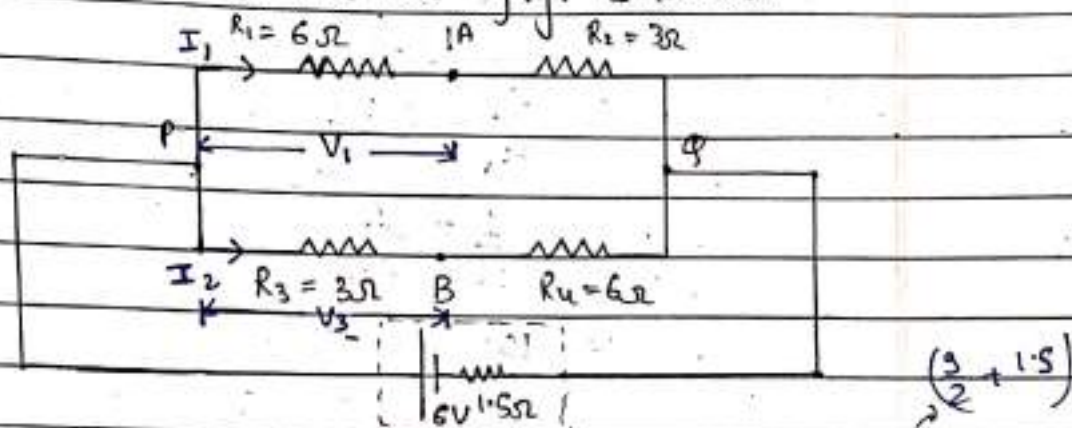 I₁ R₁ = 6 Ω A R₂ = 3Ω
P V₁ Q
I₂ R₃ = 3Ω B R₄ = 6Ω
V₃
6V 1.5Ω (9/2 + 1.5)